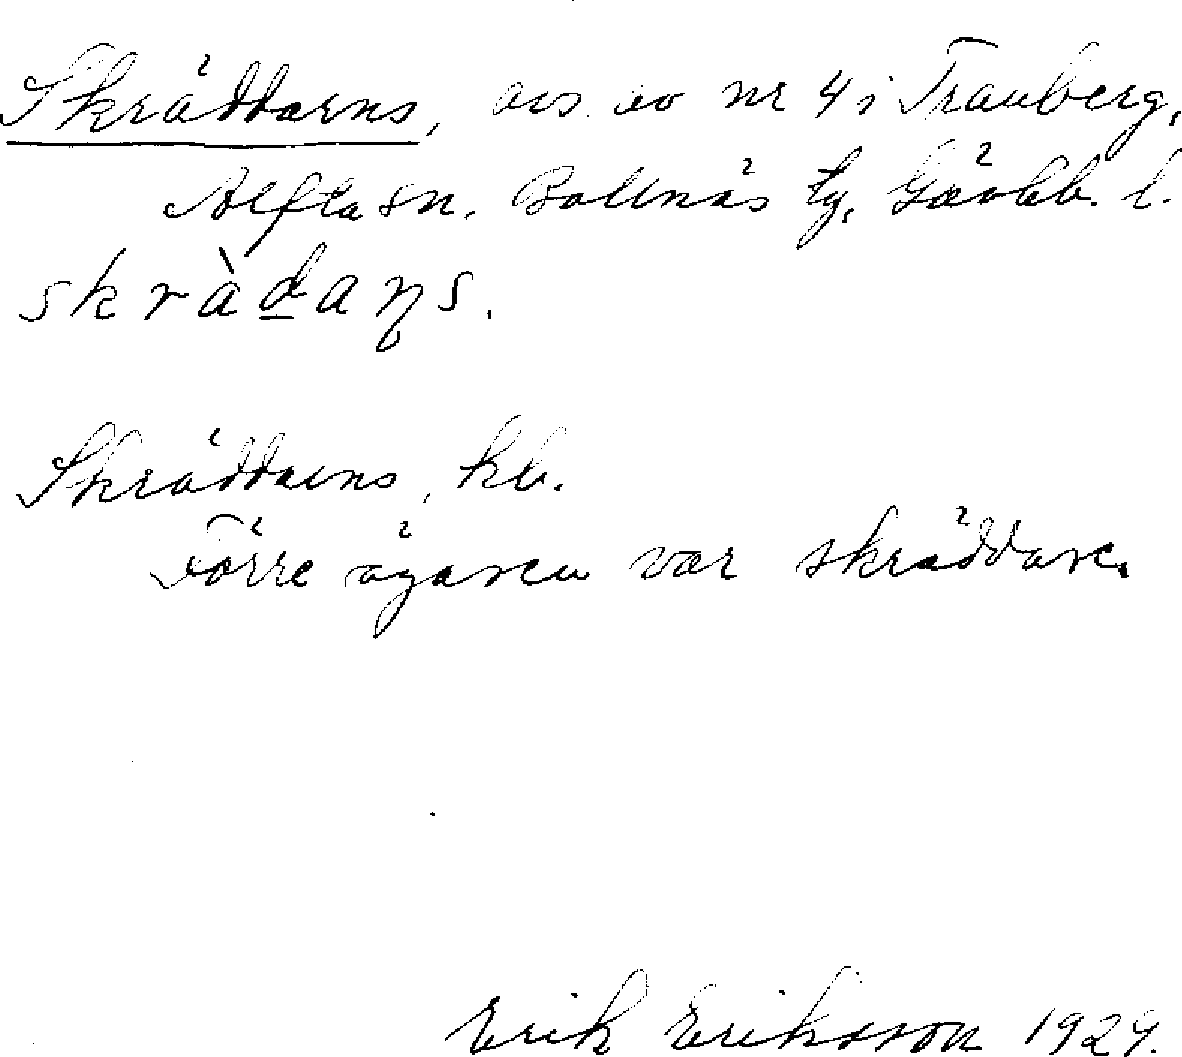 Skräddarns, avs. av nr 4 i Tranberg,
Alfta sn. Bollnäs tg. Gävleb. l.
skràdans.
Skräddarns, kb.
Förre ägaren var skräddare.
Erik Eriksson 1929.